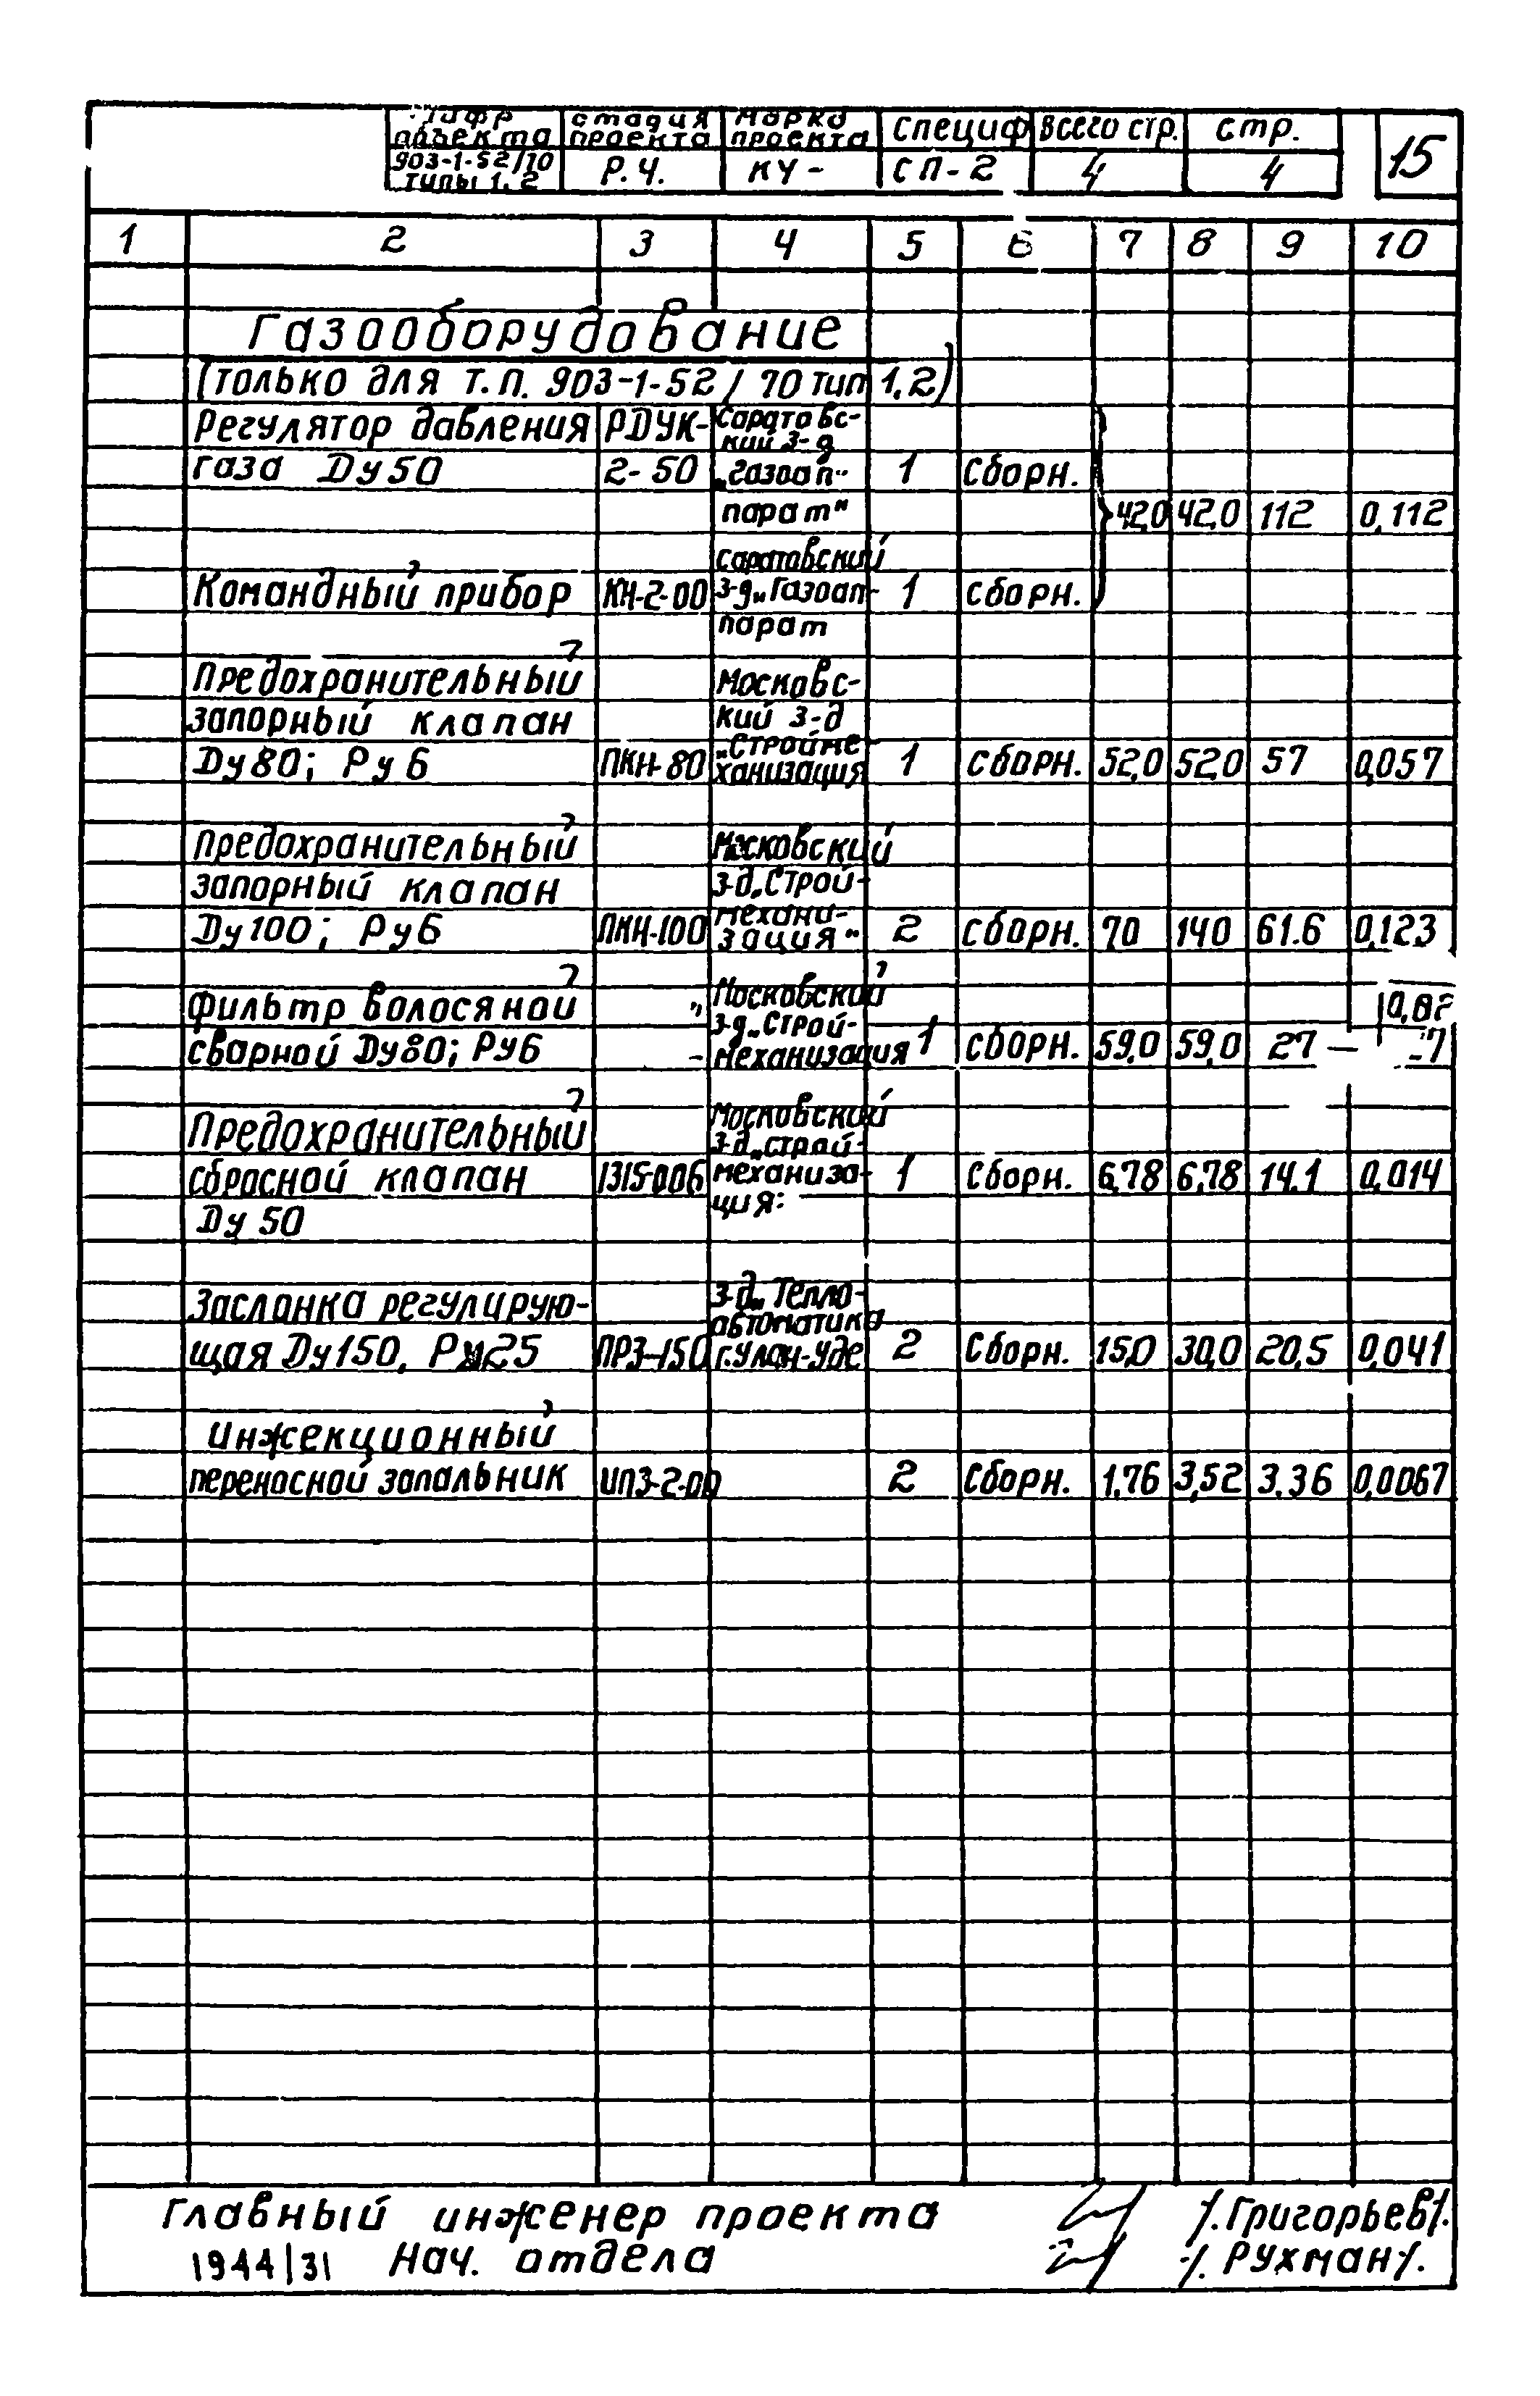 Шифр объекта стадия проекта марка проекта Специф всего стр. стр. 15
903-1-52/70 типы 1, 2 Р.Ч. КУ- СП-2 4 4
1 2 3 4 5 6 7 8 9 10
Газооборудование
(только для т.п. 903-1-52/70 тип 1,2)
Регулятор давления РДУК- Саратовс-
кий з-д
газа Ду 50 2-50 „газоап- 1 Сборн.
парат" 42,0 42,0 112 0,112
саратовский
Командный прибор КН-2-00 з-д „Газоап- 1 сборн.
парат
Предохранительный Московс-
запорный клапан кий з-д
„Стройме
Ду 80; Ру 6 ПКН-80 ханизация 1 сборн. 52,0 52,0 57 0,057
Предохранительный Московский
запорный клапан з-д „Строй-
механи-
Ду 100; Ру 6 ПКН-100 зация" 2 сборн. 70 140 61.6 0,123
Фильтр волосяной „ Московский
з-д „Строй-
сварной Ду80; Ру6 - механизация 1 сборн. 59,0 59,0 27 —
Предохранительный Московский
з-д „строй-
сбросной клапан 1315-006 механиза- 1 Сборн. 6,78 6,78 14.1 0,014
ция:
Ду 50
Заслонка регулирую- з-д „Тепло-
автоматика
щая Ду 150, Ру25 ПРЗ-150 г.Улан-Уде 2 Сборн. 15,0 30,0 20,5 0,041
Инжекционный
переносной запальник ИПЗ-2-00 2 Сборн. 1,76 3,52 3.36 0,0067
Главный инженер проекта /.Григорьев/.
1944/31 Нач. отдела /. Рухман/.